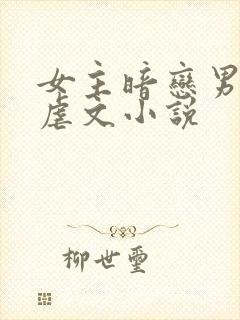 女主暗戀男
虐文小說
柳世璽